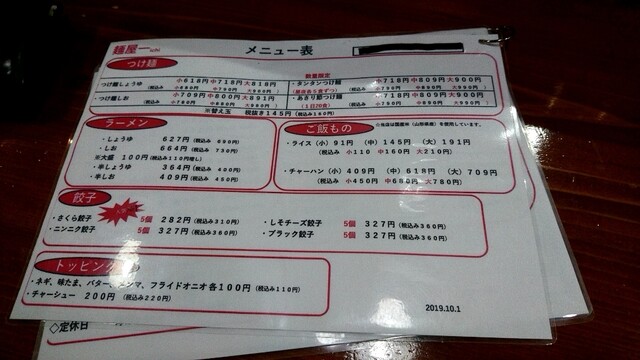 麺屋一 メニュー表
つけ麺
数量限定
・つけ麺しょうゆ 小618円 中718円 大818円
・タンタンつけ麺 小718円 中809円 大900円
(税込み 小680円 中790円 大900円)
・つけ麺しお 小709円 中800円 大891円
・あさり節つけ麺 小718円 中809円 大900円
(1日20食)
※替え玉 税抜き145円
ラーメン
・しょうゆ 627円(税込み 690円)
・しお 664円(税込み 730円)
※大盛 100円(税込み110円増し)
・半しょうゆ 364円(税込み 400円)
・半しお 409円(税込み 450円)
ご飯もの
・ライス(小)91円 (中)145円 (大)191円
(税込み 小110 中160円 大210円)
・チャーハン(小)409円 (中)618円 (大)709円
(税込み 小450円 中680円 大780円)
餃子
・さくら餃子 5個 282円(税込み310円)
・しそチーズ餃子 5個 327円(税込み360円)
・ニンニク餃子 5個 327円(税込み360円)
・ブラック餃子 5個 327円(税込み360円)
トッピング
・ネギ、味たま、バター、メンマ、フライドオニオ各100円(税込み110円)
・チャーシュー 200円(税込み220円)
2019.10.1
◇定休日